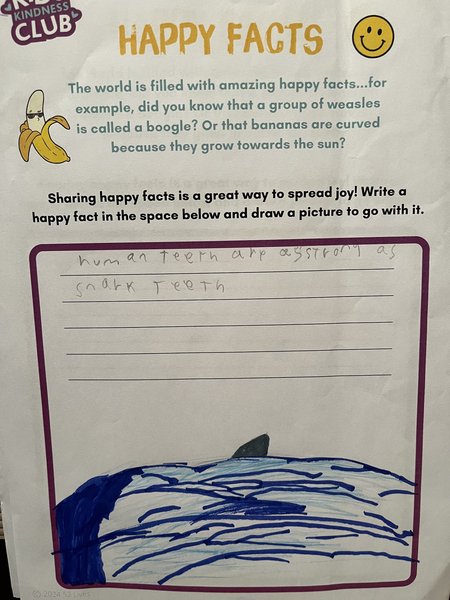 KINDNESS
CLUB
HAPPY FACTS
The world is filled with amazing happy facts...for
example, did you know that a group of weasles
is called a boogle? Or that bananas are curved
because they grow towards the sun?
Sharing happy facts is a great way to spread joy! Write a
happy fact in the space below and draw a picture to go with it.
human teeth are asstrong as
shark teeth
© 2024 52 Lives